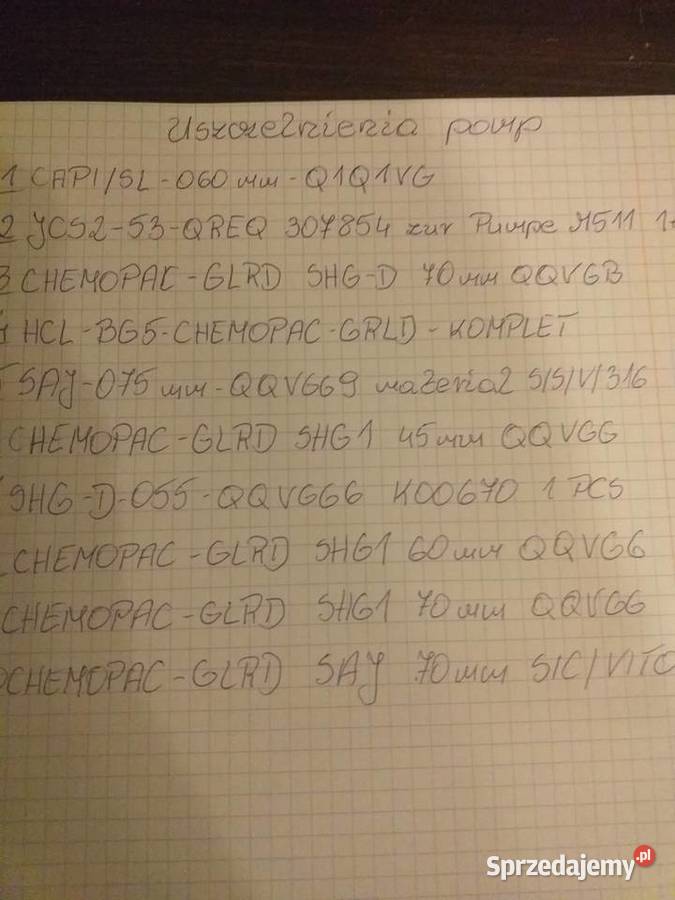 Uszczelnienia pomp
1 CAPI/SL-060mm-Q1Q1VG
2 JCS2-53-QREQ 307854 zur Pumpe M511
3 CHEMOPAC-GLRD SHG-D 70mm QQVGB
HCL-BG5-CHEMOPAC-GRLD-KOMPLET
SAJ-075mm-QQVGG9 material S/S/V/316
CHEMOPAC-GLRD SHG1 45mm QQVGG
SHG-D-055-QQVGG6 K00670 1 PCS
CHEMOPAC-GLRD SHG1 60mm QQVGG
CHEMOPAC-GLRD SHG1 70mm QQVGG
CHEMOPAC-GLRD SAJ 70mm SIC/VITO
Sprzedajemy.pl